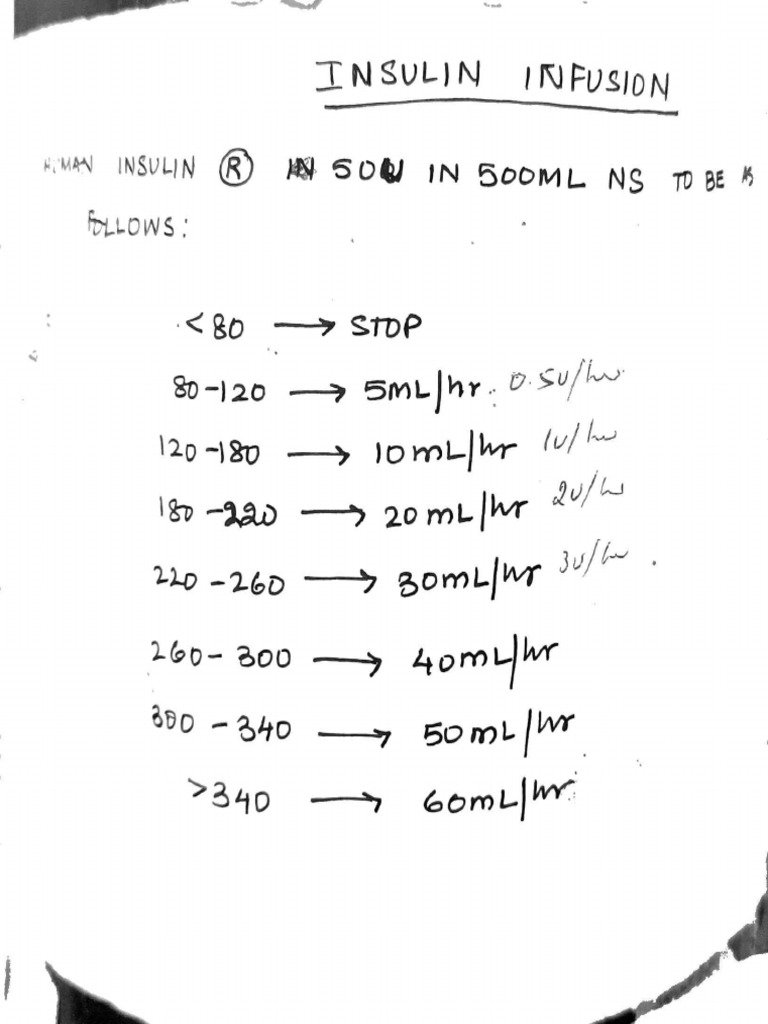 INSULIN INFUSION
HUMAN INSULIN R IN 50U IN 500ML NS TO BE AS
FOLLOWS:
<80 → STOP
80-120 → 5mL/hr. 0.5U/hr
120-180 → 10mL/hr 1U/hr
180-220 → 20mL/hr 2U/hr
220-260 → 30mL/hr 3U/hr
260-300 → 40mL/hr
300-340 → 50mL/hr
>340 → 60mL/hr